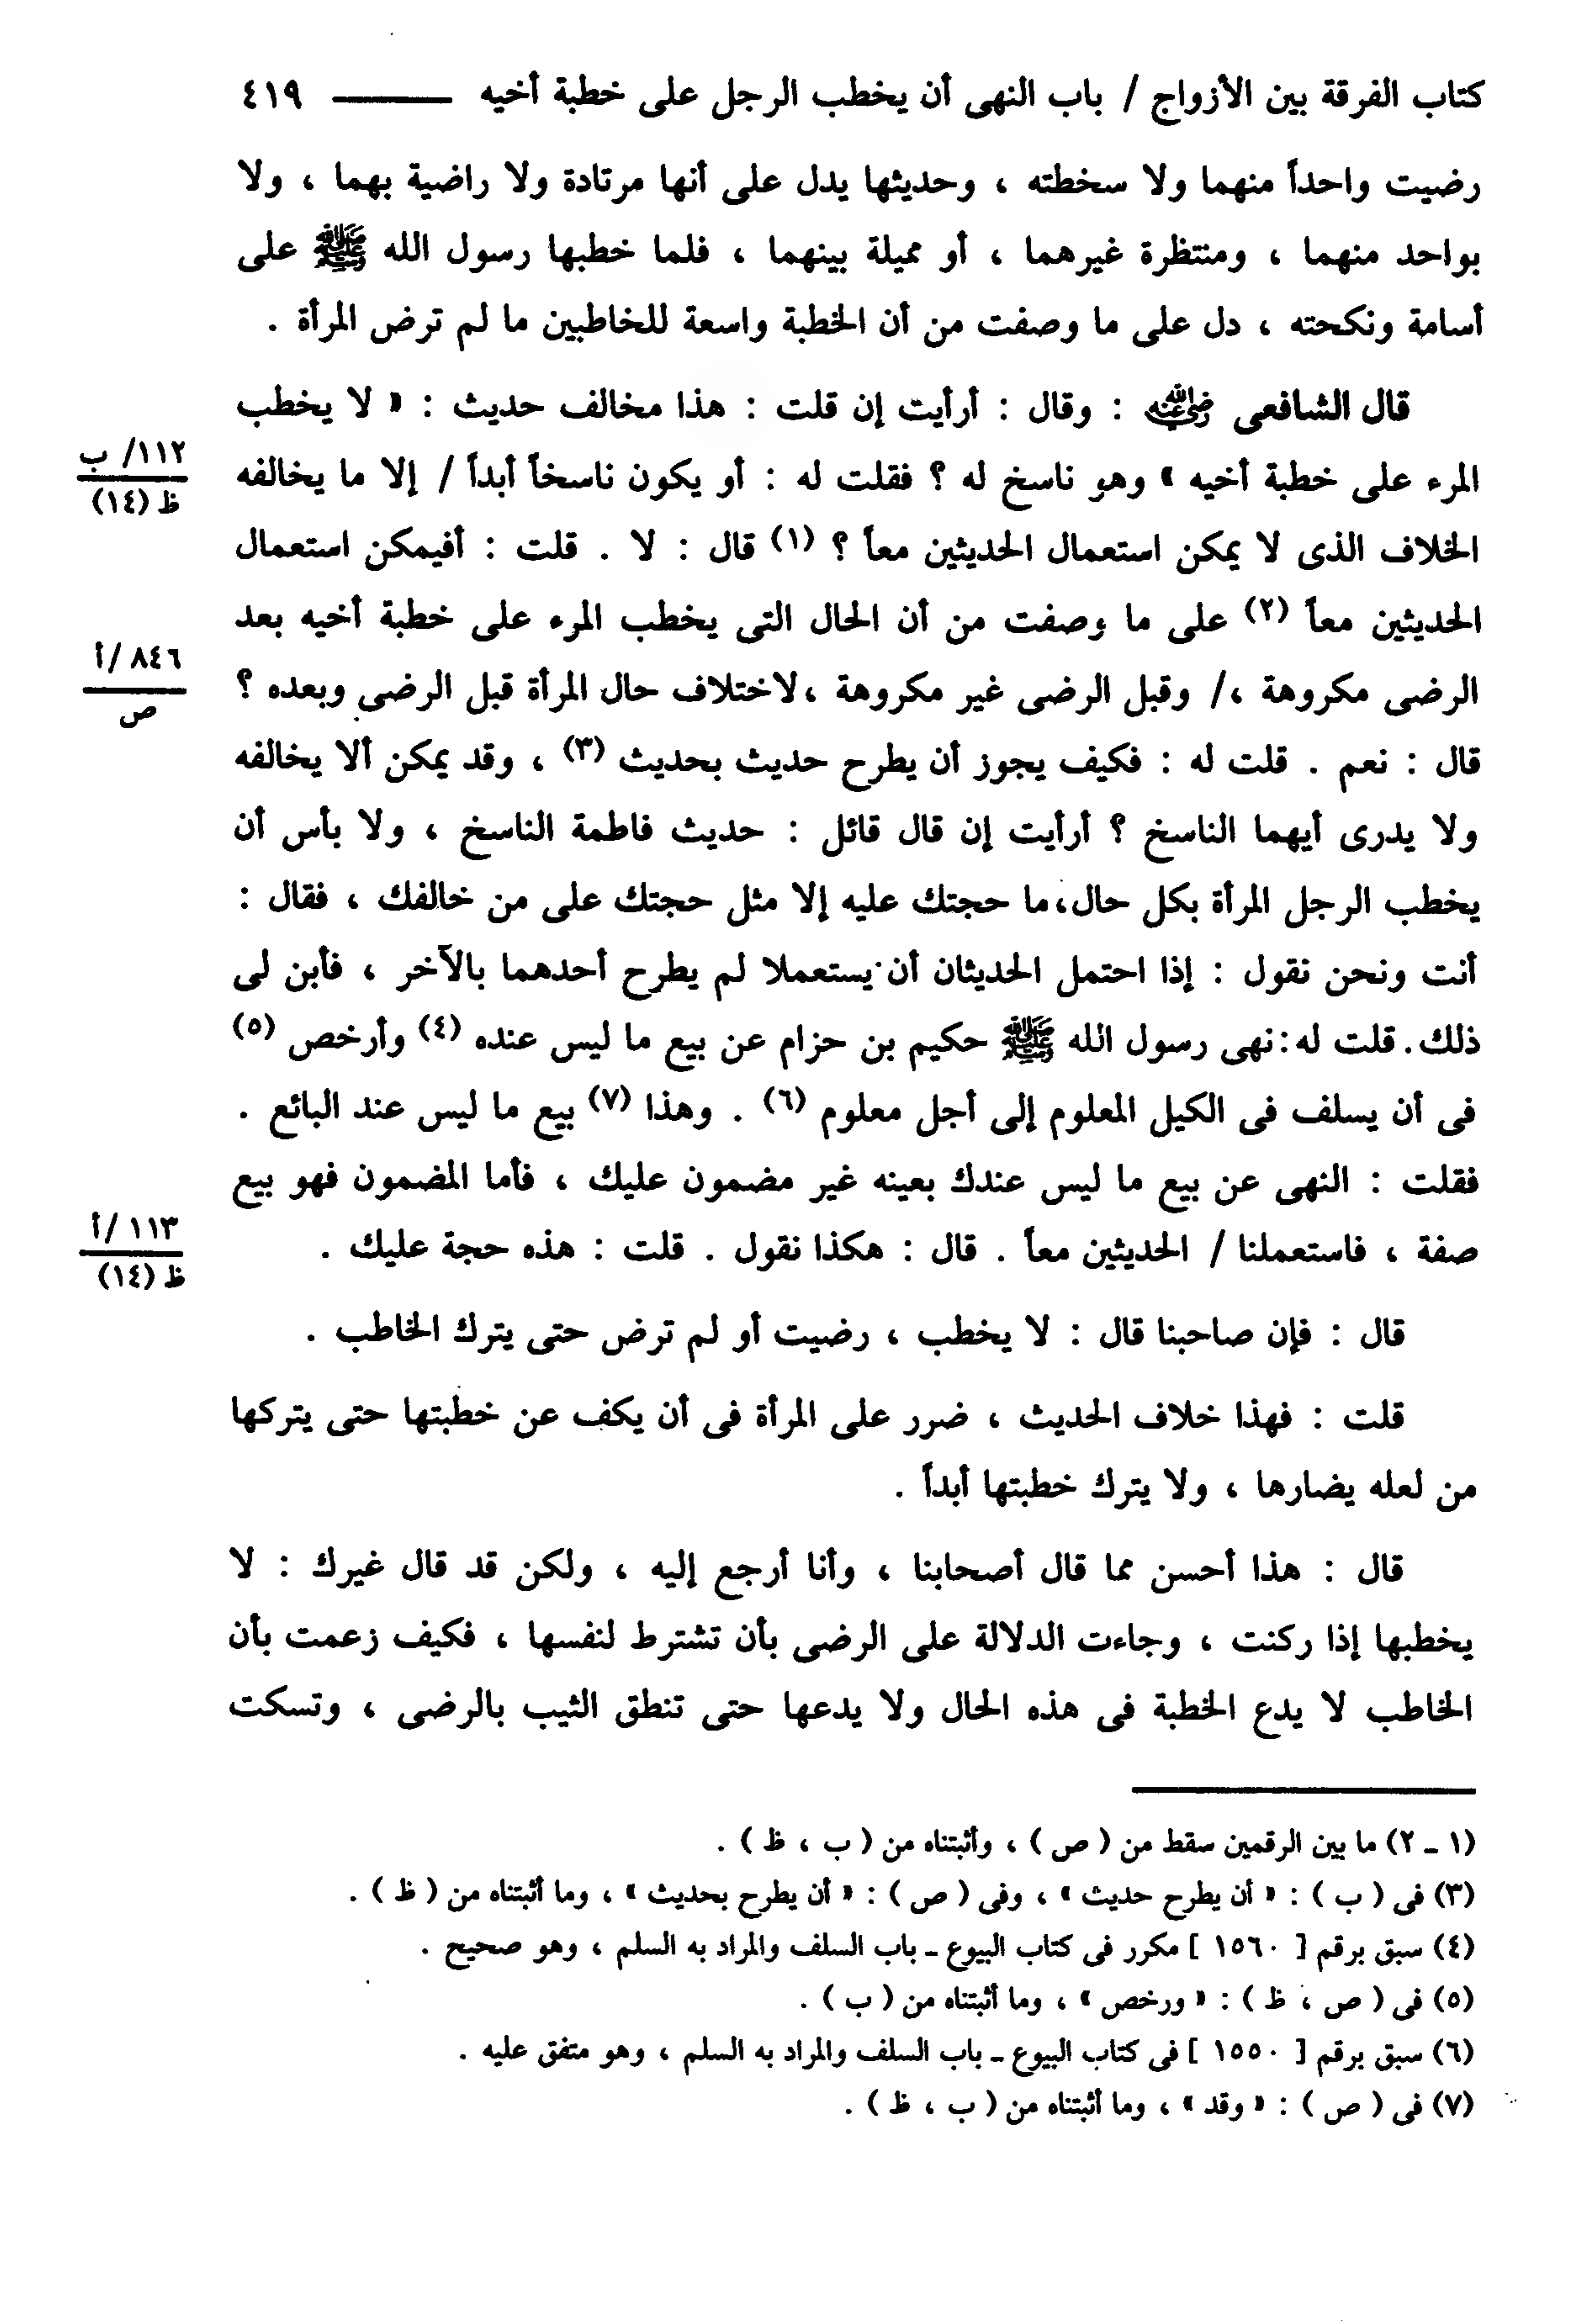 كتاب الفرقة بين الأزواج / باب النهى أن يخطب الرجل على خطبة أخيه ــــــــ ٤١٩
رضيت واحداً منهما ولا سخطته ، وحديثها يدل على أنها مرتادة ولا راضية بهما ، ولا
بواحد منهما ، ومنتظرة غيرهما ، أو مميلة بينهما ، فلما خطبها رسول الله ﷺ على
أسامة ونكحته ، دل على ما وصفت من أن الخطبة واسعة للخاطبين ما لم ترض المرأة .
قال الشافعى رضي الله عنه : وقال : أرأيت إن قلت : هذا مخالف حديث : « لا يخطب
المرء على خطبة أخيه » وهو ناسخ له ؟ فقلت له : أو يكون ناسخاً أبداً / إلا ما يخالفه
١١٢/ ب
ظ (١٤)
الخلاف الذى لا يمكن استعمال الحديثين معاً ؟ (١) قال : لا . قلت : أفيمكن استعمال
الحديثين معاً (٢) على ما وصفت من أن الحال التى يخطب المرء على خطبة أخيه بعد
الرضى مكروهة ،/ وقبل الرضى غير مكروهة ،لاختلاف حال المرأة قبل الرضى وبعده ؟
٨٤٦ /أ
ص
قال : نعم . قلت له : فكيف يجوز أن يطرح حديث بحديث (٣) ، وقد يمكن ألا يخالفه
ولا يدرى أيهما الناسخ ؟ أرأيت إن قال قائل : حديث فاطمة الناسخ ، ولا بأس أن
يخطب الرجل المرأة بكل حال،ما حجتك عليه إلا مثل حجتك على من خالفك ، فقال :
أنت ونحن نقول : إذا احتمل الحديثان أن يستعملا لم يطرح أحدهما بالآخر ، فأبن لى
ذلك. قلت له :نهى رسول الله ﷺ حكيم بن حزام عن بيع ما ليس عنده (٤) وأرخص (٥)
فى أن يسلف فى الكيل المعلوم إلى أجل معلوم (٦) . وهذا (٧) بيع ما ليس عند البائع .
فقلت : النهى عن بيع ما ليس عندك بعينه غير مضمون عليك ، فأما المضمون فهو بيع
صفة ، فاستعملنا / الحديثين معاً . قال : هكذا نقول . قلت : هذه حجة عليك .
١١٣ /أ
ظ (١٤)
قال : فإن صاحبنا قال : لا يخطب ، رضيت أو لم ترض حتى يترك الخاطب .
قلت : فهذا خلاف الحديث ، ضرر على المرأة فى أن يكف عن خطبتها حتى يتركها
من لعله يضارها ، ولا يترك خطبتها أبداً .
قال : هذا أحسن مما قال أصحابنا ، وأنا أرجع إليه ، ولكن قد قال غيرك : لا
يخطبها إذا ركنت ، وجاءت الدلالة على الرضى بأن تشترط لنفسها ، فكيف زعمت بأن
الخاطب لا يدع الخطبة فى هذه الحال ولا يدعها حتى تنطق الثيب بالرضى ، وتسكت
(١ ـ ٢) ما بين الرقمين سقط من ( ص ) ، وأثبتناه من ( ب ، ظ ) .
(٣) فى ( ب ) : « أن يطرح حديث » ، وفى ( ص ) : « أن يطرح بحديث » ، وما أثبتناه من ( ظ ) .
(٤) سبق برقم [ ١٥٦٠ ] مكرر فى كتاب البيوع ـ باب السلف والمراد به السلم ، وهو صحيح .
(٥) فى ( ص ، ظ ) : « ورخص » ، وما أثبتناه من ( ب ) .
(٦) سبق برقم [ ١٥٥٠ ] فى كتاب البيوع ـ باب السلف والمراد به السلم ، وهو متفق عليه .
(٧) فى ( ص ) : « وقد » ، وما أثبتناه من ( ب ، ظ ) .